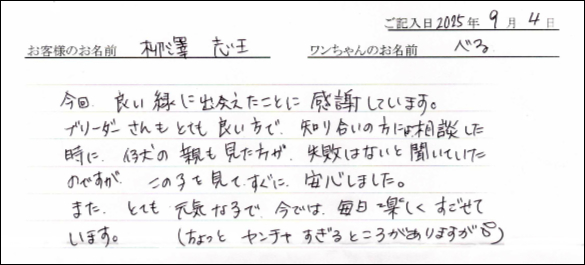 ご記入日2025年 9月 4日
お客様のお名前 柳澤 志王 ワンちゃんのお名前 べる
今回、良い縁に出会えたことに 感謝しています。
ブリーダーさんもとても良い方で、知り合いの方には相談した
時に、仔犬の親も見た方が、失敗はないと聞いていた
のですが、この子を見て、すぐに、安心しました。
また、とても 元気な子で、今では、毎日楽しく すごせて
います。 (ちょっと ヤンチャ すぎるところがありますが